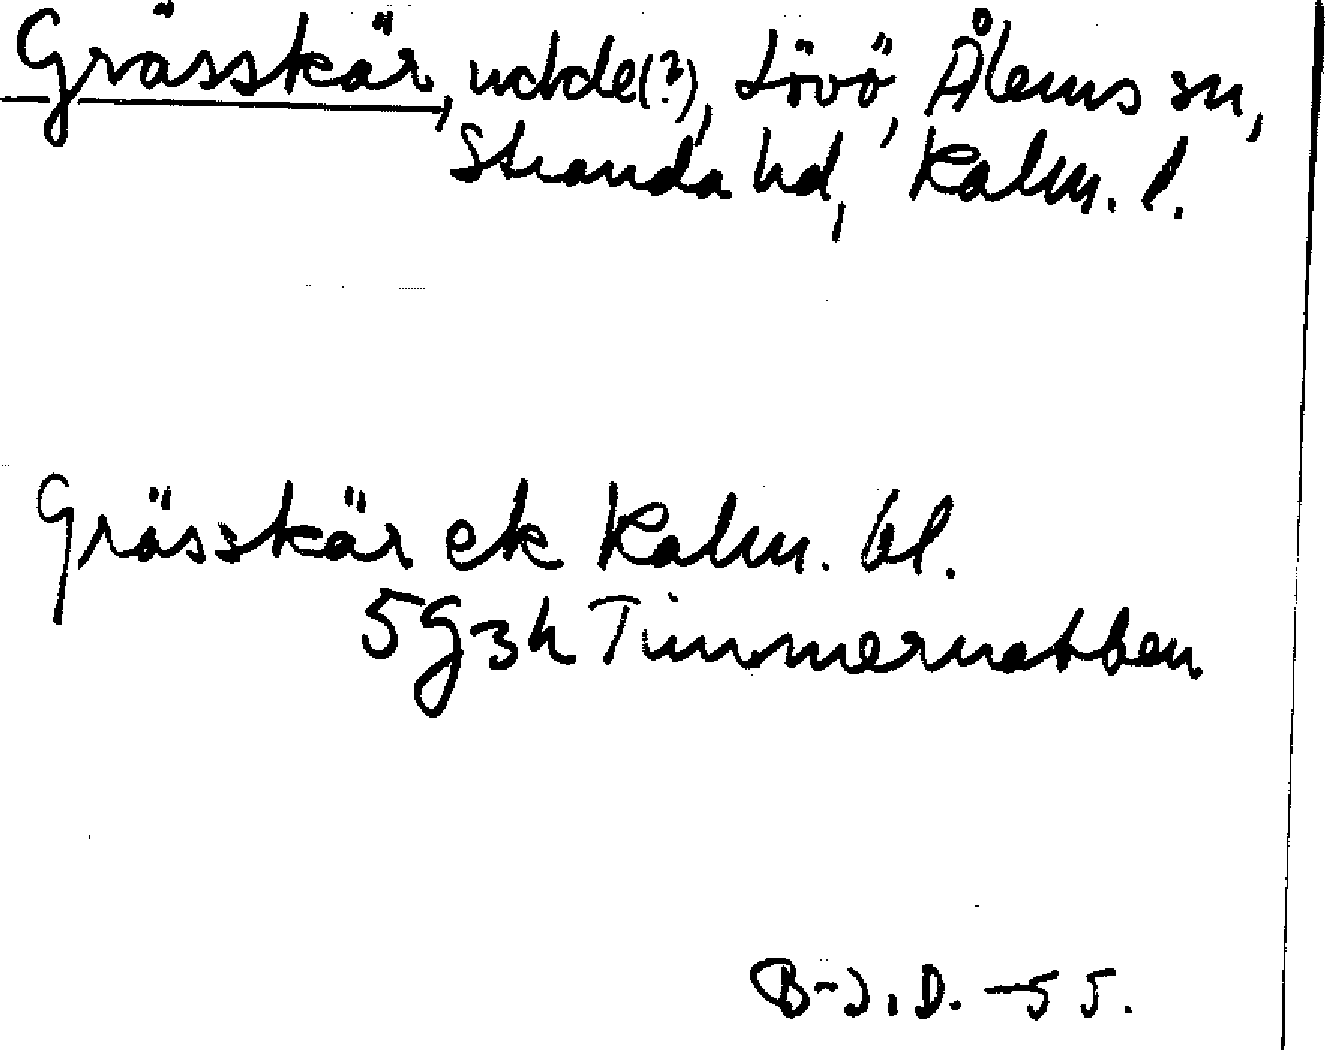 Grässkär, udde(?), Lövö, Ålems sn,
Stranda hd, Kalm. l.
Grässkär ek Kalm. bl.
5g3h Timmernabben
B-J.D. -55.